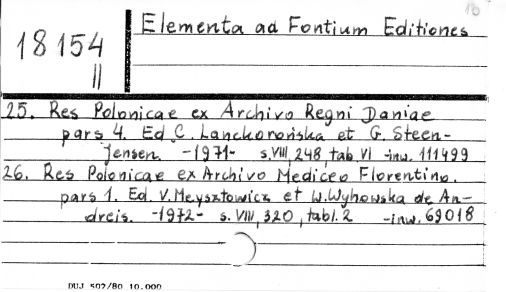 10
18154
II
Elementa ad Fontium Editiones
25. Res Polonicae ex Archivo Regni Daniae
pars 4. Ed C. Lanckorońska et G. Steen-
Jensen. -1971- s. VIII, 248, tab VI -inw. 111499
26. Res Polonicae ex Archivo Mediceo Florentino.
pars 1. Ed. V. Meysztowicz et W. Wyhowska de An-
dreis. -1972- s. VIII, 320, tabl. 2 -inw. 69018
DUJ 507/80 10.000